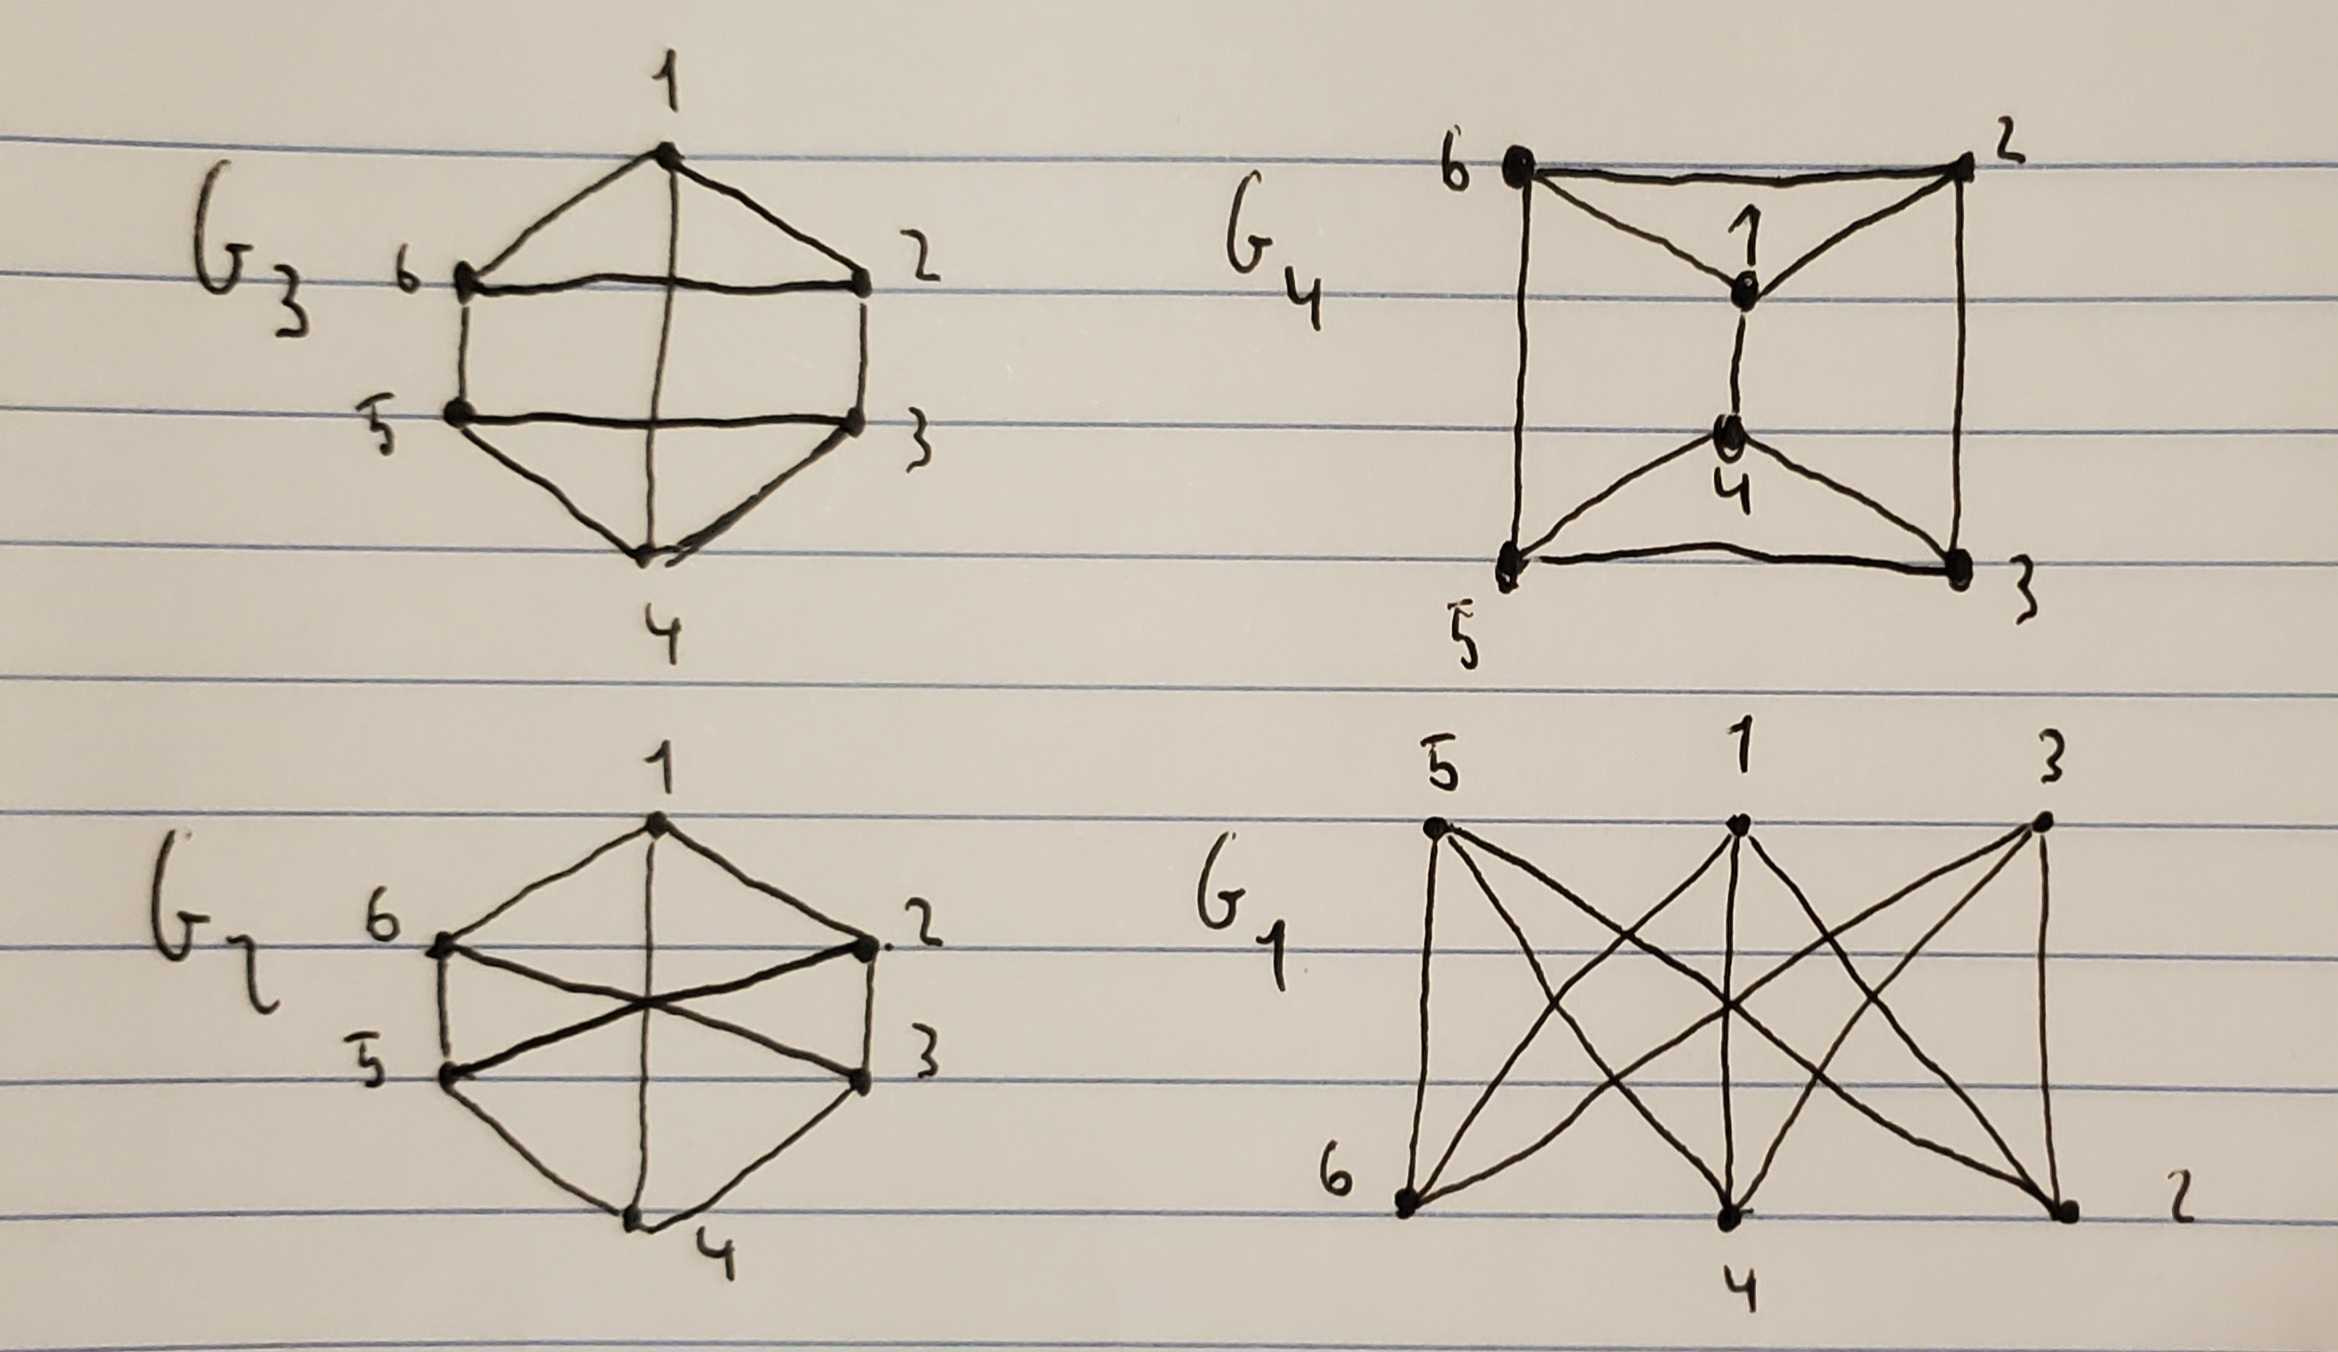 1
G3
6
2
5
3
4
G4
6
2
1
4
5
3
G2
1
6
2
5
3
4
G1
5
1
3
6
4
2